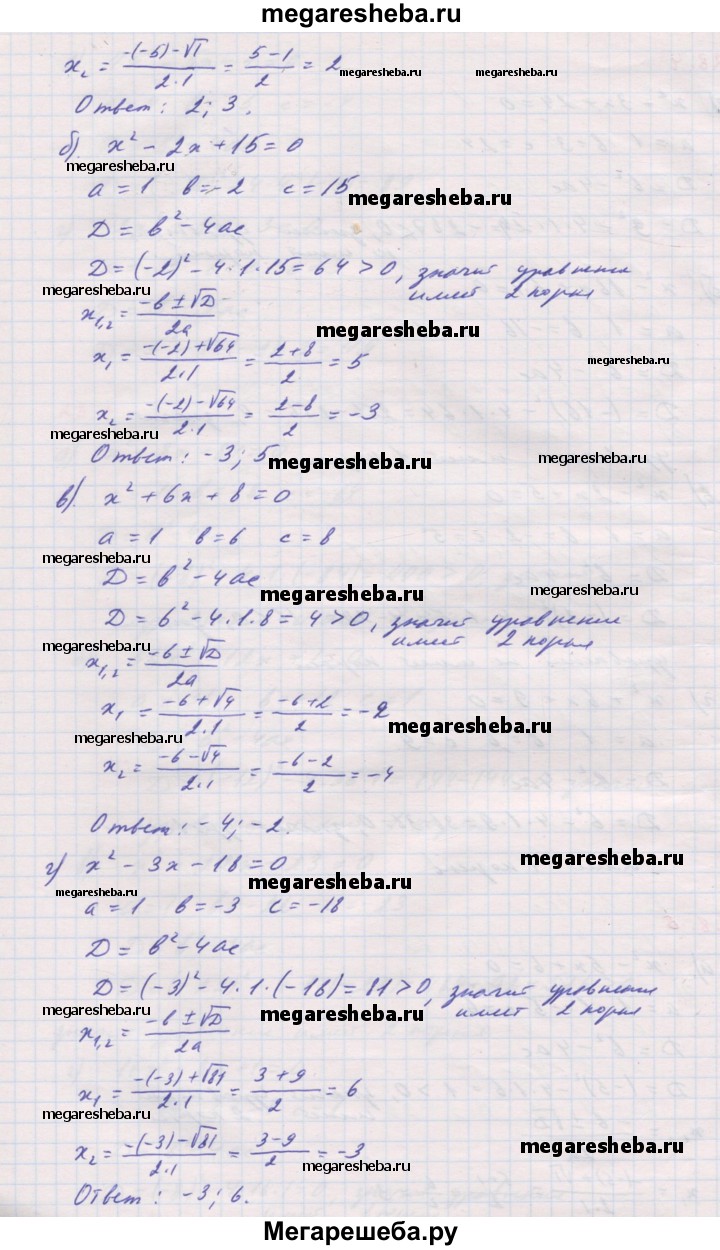 megaresheba.ru
x₂ = (-(-5)-√1)/(2·1) = (5-1)/2 = 2 megaresheba.ru megaresheba.ru
Ответ: 2; 3.
б). x² - 2x + 15 = 0
megaresheba.ru
a = 1 b = -2 c = 15 megaresheba.ru
D = b² - 4ac
D = (-2)² - 4·1·15 = 64 > 0, значит уравнение
имеет 2 корня
megaresheba.ru
x₁,₂ = (-b ± √D)/(2a)
megaresheba.ru
x₁ = (-(-2)+√64)/(2·1) = (2+8)/2 = 5 megaresheba.ru
x₂ = (-(-2)-√64)/(2·1) = (2-8)/2 = -3
megaresheba.ru
Ответ: -3; 5 megaresheba.ru megaresheba.ru
в). x² + 6x + 8 = 0
a = 1 b = 6 c = 8
megaresheba.ru
D = b² - 4ac
megaresheba.ru megaresheba.ru
D = 6² - 4·1·8 = 4 > 0, значит уравнение
имеет 2 корня
megaresheba.ru
x₁,₂ = (-b ± √D)/(2a)
x₁ = (-6+√4)/(2·1) = (-6+2)/2 = -2
megaresheba.ru
megaresheba.ru
x₂ = (-6-√4)/(2·1) = (-6-2)/2 = -4
Ответ: -4; -2.
г) x² - 3x - 18 = 0
megaresheba.ru megaresheba.ru megaresheba.ru
a = 1 b = -3 c = -18
D = b² - 4ac
D = (-3)² - 4·1·(-18) = 81 > 0, значит уравнение
имеет 2 корня
megaresheba.ru megaresheba.ru
x₁,₂ = (-b ± √D)/(2a)
x₁ = (-(-3)+√81)/(2·1) = (3+9)/2 = 6
megaresheba.ru
x₂ = (-(-3)-√81)/(2·1) = (3-9)/2 = -3 megaresheba.ru
megaresheba.ru
Ответ: -3; 6.
Мегарешеба.ру